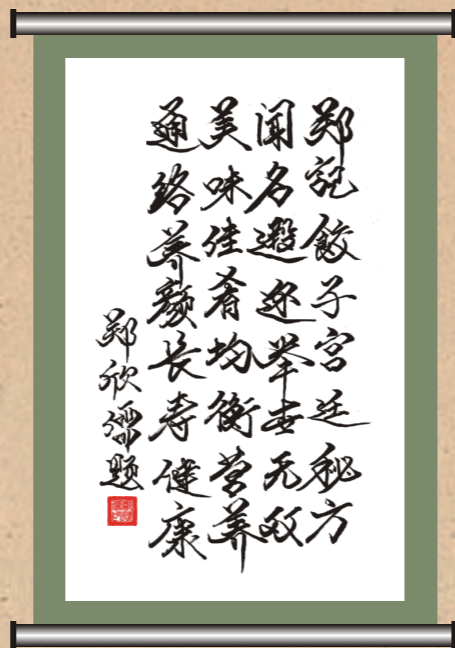 郑記餃子宫廷秘方
闻名遐迩举世无双
美味佳肴均衡营养
通络养颜长寿健康
郑欣弥题